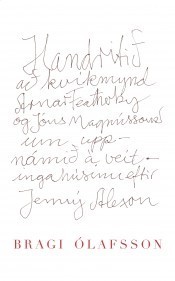 Handritið
að kvikmynd
Arnar Featherby
og Jóns Magnússonar
um upp-
námið á veit-
ingahúsinu eftir
Jenný Alexson
BRAGI ÓLAFSSON